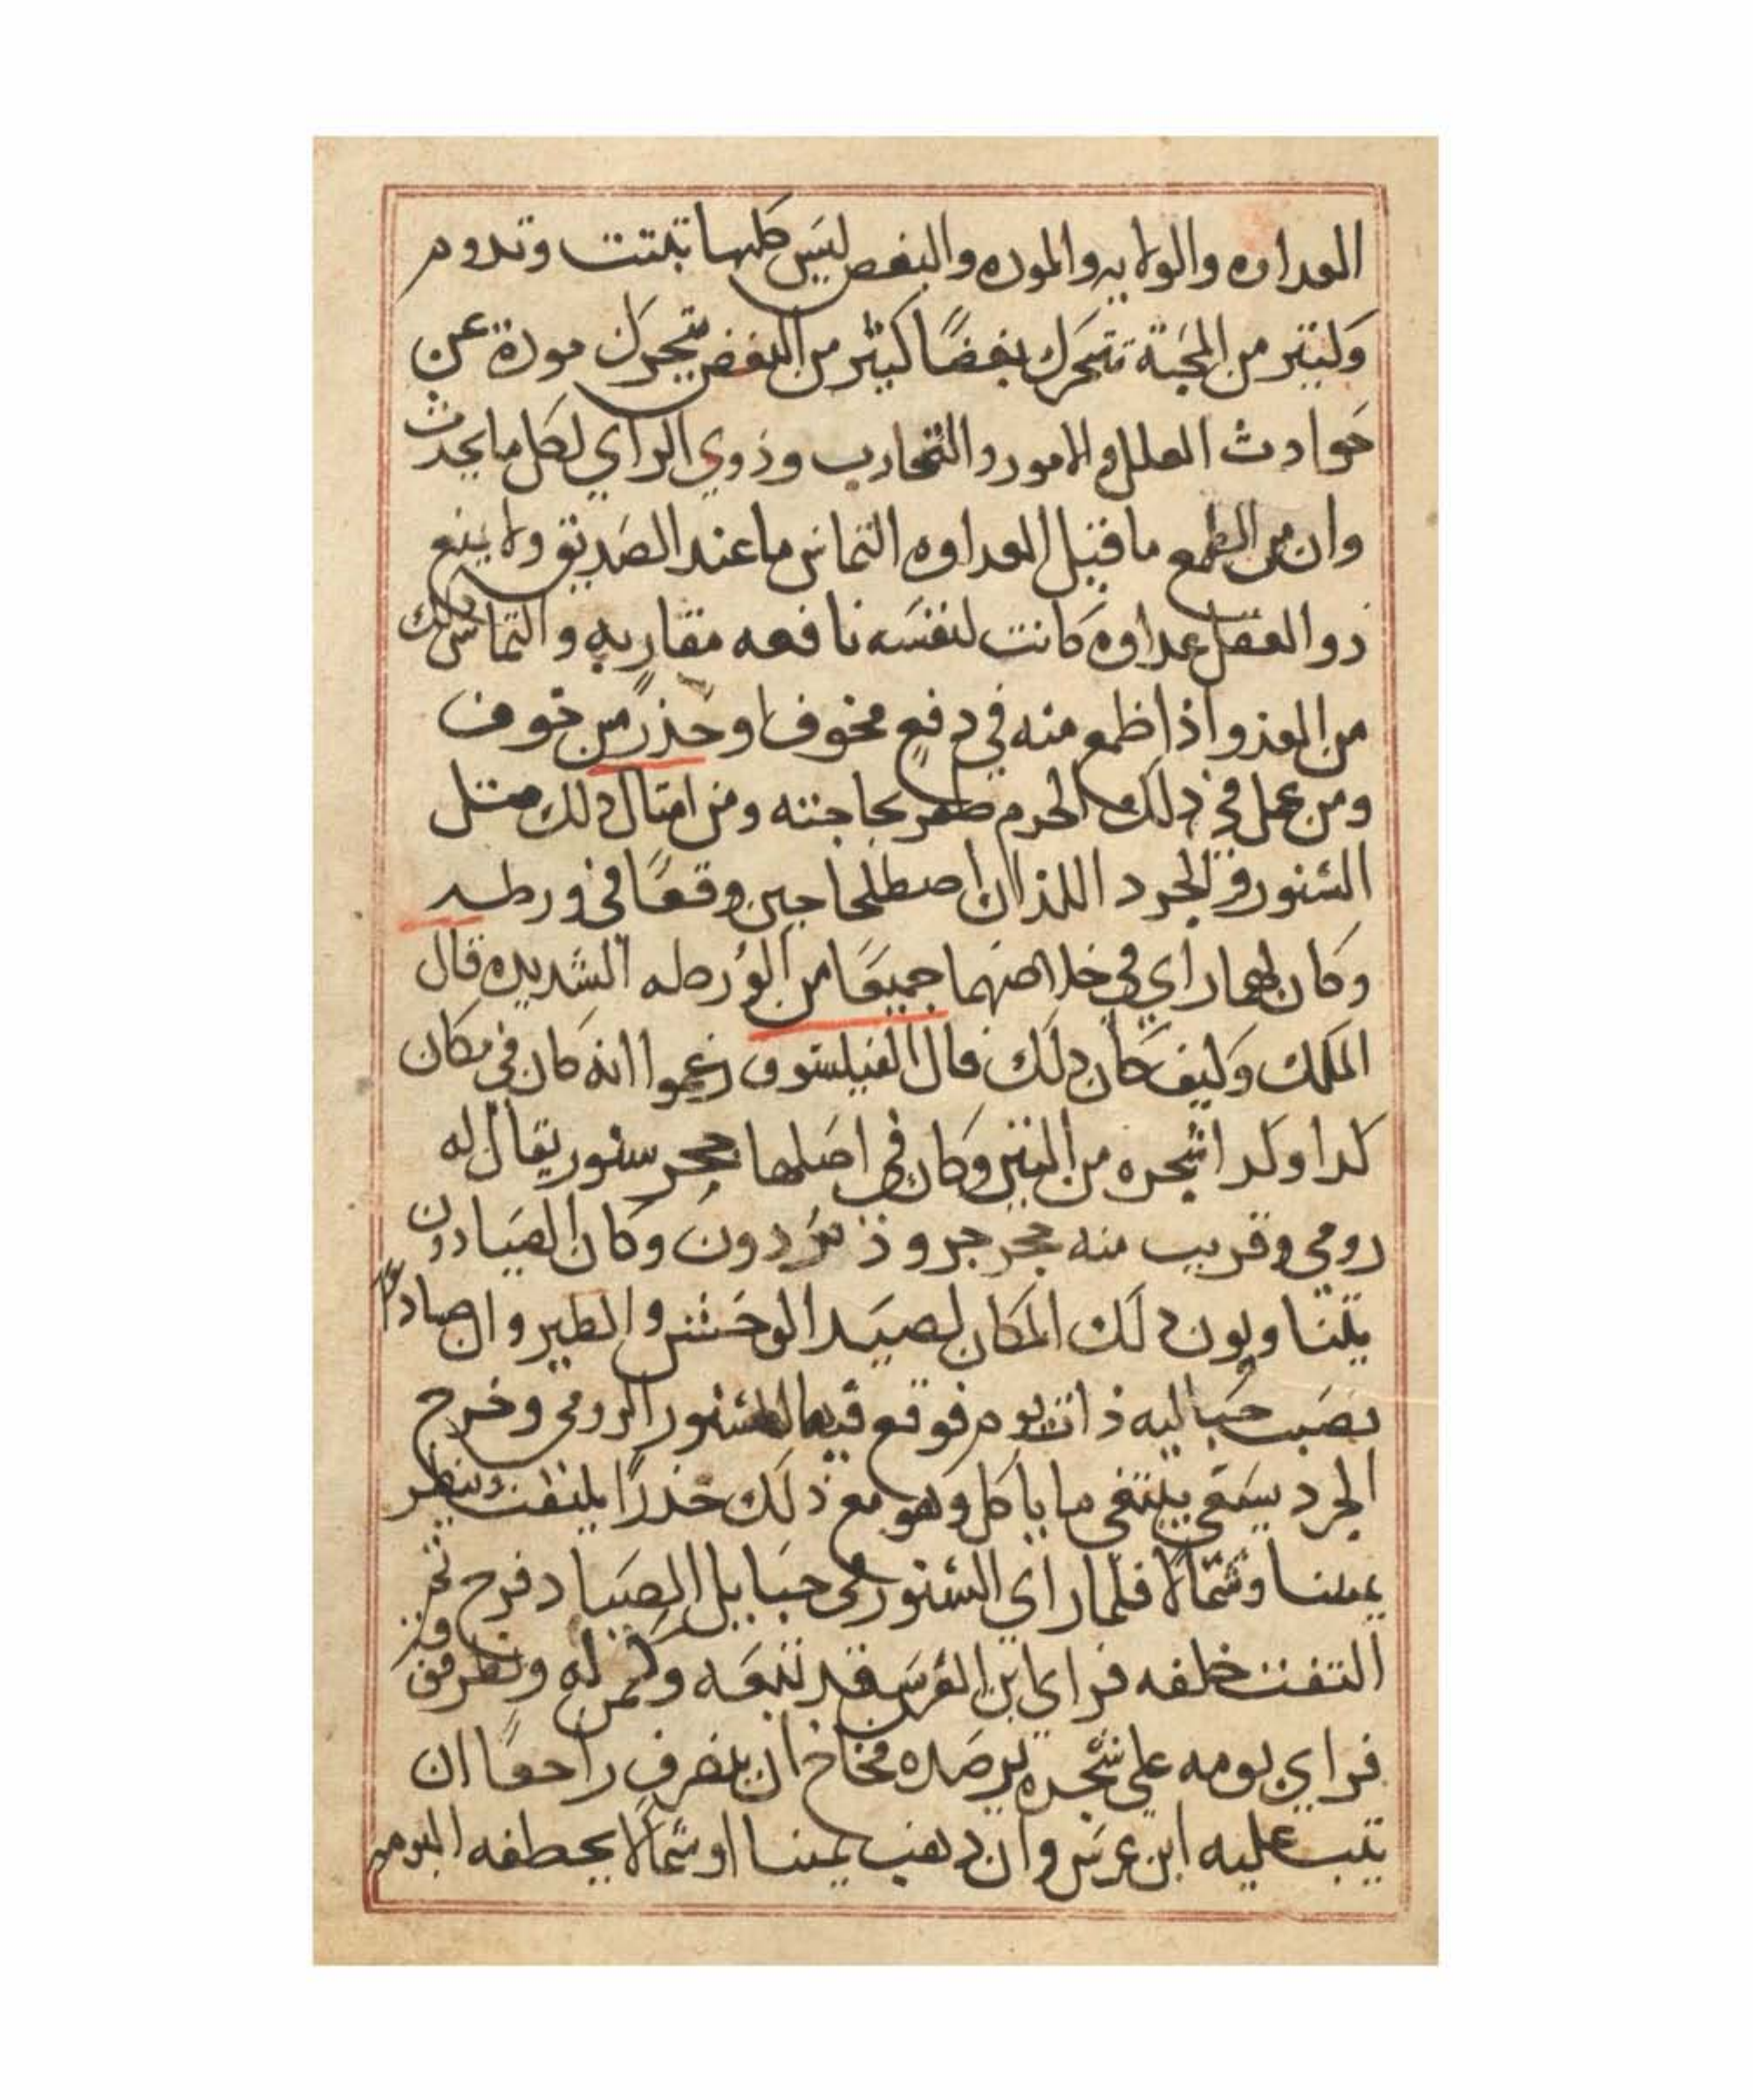 العداوه والولايه والموده والبغض ليس كلها تثبت وتدوم
وكثير من المحبة تتحرك بغضًا كثير من البغض يتحرك مودة عن
حوادث العلل والامور والتجارب وذوي الراي لكل ما يحدث
وان من الطمع ما قبل العداوه التماس ما عند الصديق ولا يمنع
ذو العقل عداوه كانت لنفسه نافعه مقاربه والتماس ذلك
من العدو اذا طمع منه في دفع مخوف او حذر من خوف
ومن عمل في ذلك الحزم ظفر بحاجته ومن امثال ذلك مثل
السنور والجرد اللذان اصطلحا حين وقعا في ورطه
وكان لهما راي في خلاصهما جميعًا من الورطه الشديده قال
الملك وكيف كان ذلك قال الفيلسوف زعموا انه كان في مكان
كدا وكدا شجره من التين وكان في اصلها جحر سنور يقال له
رومي وقريب منه جحر جرو ذ دون وكان الصيادون
يتناوبون ذلك المكان لصيد الوحش والطير وان صيادا
نصب حباليه ذات يوم فوقع فيها السنور الرومي وخرج
الجرد يسعى يبتغي ما ياكل وهو مع ذلك حذرًا يلتفت وينظر
يمينا وشمالا فلما راي السنور في حبايل الصياد فرح ثم
التفت خلفه فراي ابن العرس قد تبعه وكمن له ونظر فوق
فراي بومه على شجره ترصده فخاف ان ينصرف راجعًا ان
يثب عليه ابن عرس وان ذهب يمينا او شمالا يخطفه البوم